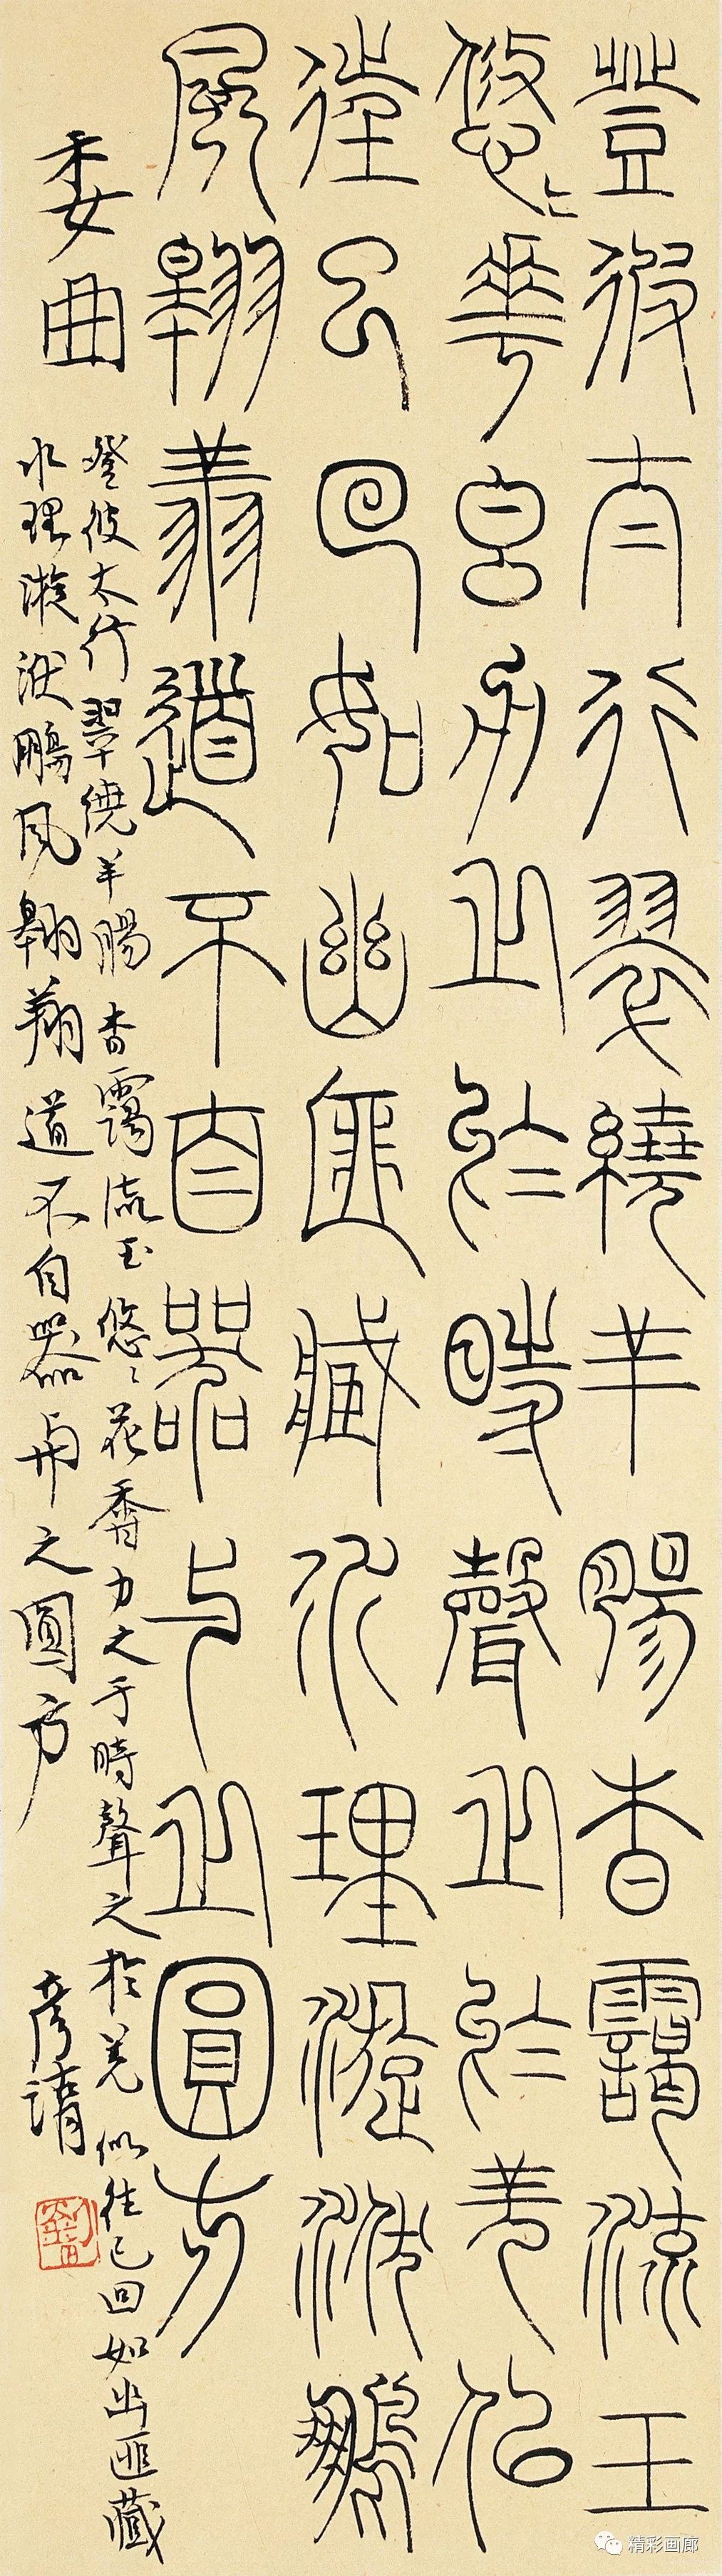 登彼太行翠繞羊腸杳靄流玉
悠悠花香力之于時聲之于羌似
往已回如幽匪藏水理漩洑鵬
風翱翔道不自器與之圓方
委曲
登彼太行翠繞羊腸杳靄流玉悠悠花香力之于時聲之於羌似往已回如幽匪藏
水理漩洑鵬風翱翔道不自器與之圓方
彦湖
劉
精彩画廊